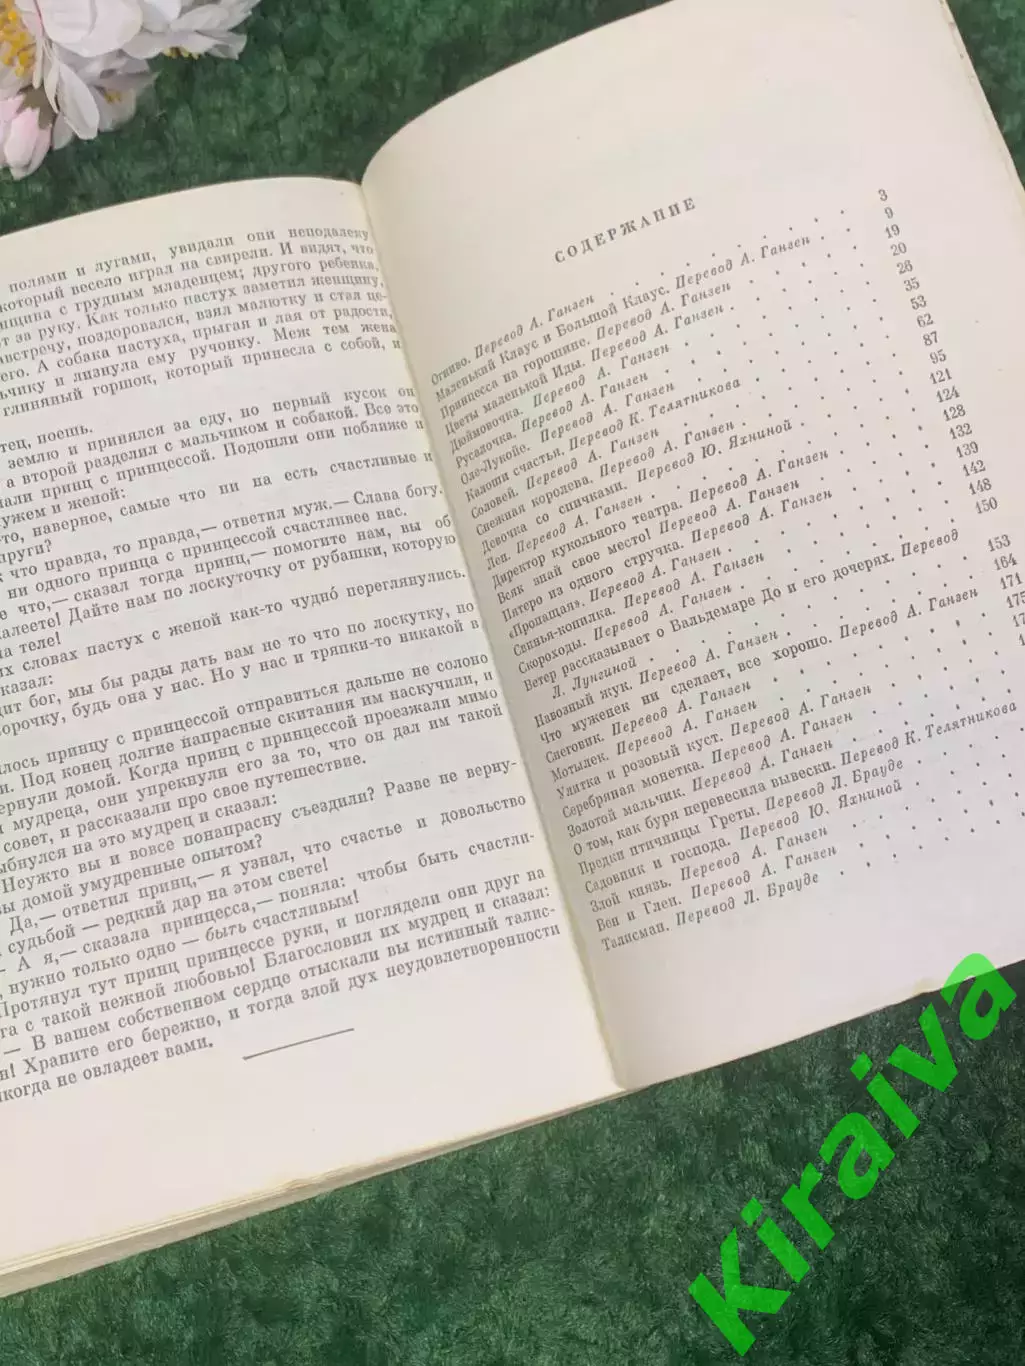 полями и лугами, увидали они неподалеку
который весело играл на свирели. И видят, что
нщина с грудным младенцем; другого ребенка,
т за руку. Как только пастух заметил женщину,
австречу, поздоровался, взял малютку и стал це-
его. А собака пастуха, прыгая и лая от радости,
ьчику и лизнула ему ручонку. Меж тем жена
глиняный горшок, который принесла с собой, и
тец, поешь.
землю и принялся за еду, но первый кусок он
а второй разделил с мальчиком и собакой. Все это
али принц с принцессой. Подошли они поближе и
ужем и женой:
то, наверное, самые что ни на есть счастливые и
пруги?
что правда, то правда,— ответил муж.— Слава богу.
ни одного принца с принцессой счастливее нас.
е что,— сказал тогда принц,— помогите нам, вы об
алеете! Дайте нам по лоскуточку от рубашки, которую
а теле!
их словах пастух с женой как-то чудно́ переглянулись.
казал:
дит бог, мы бы рады дать вам не то что по лоскутку, но
орочку, будь она у нас. Но у нас и тряпки-то никакой в
лось принцу с принцессой отправиться дальше не солоно
и. Под конец долгие напрасные скитания им наскучили, и
ернули домой. Когда принц с принцессой проезжали мимо
и мудреца, они упрекнули его за то, что он дал им такой
совет, и рассказали про свое путешествие.
ыбнулся на это мудрец и сказал:
Неужто вы и вовсе понапрасну съездили? Разве не верну-
вы домой умудренные опытом?
Да,— ответил принц,— я узнал, что счастье и довольство
судьбой — редкий дар на этом свете!
— А я,— сказала принцесса,— поняла: чтобы быть счастли-
, нужно только одно — быть счастливым!
Протянул тут принц принцессе руки, и поглядели они друг на
га с такой нежной любовью! Благословил их мудрец и сказал:
— В вашем собственном сердце отыскали вы истинный талис-
н! Храните его бережно, и тогда злой дух неудовлетворенности
икогда не овладеет вами.
СОДЕРЖАНИЕ
Огниво. Перевод А. Ганзен . . . 3
Маленький Клаус и Большой Клаус. Перевод А. Ганзен . . 9
Принцесса на горошине. Перевод А. Ганзен . . . 19
Цветы маленькой Иды. Перевод А. Ганзен . . . 20
Дюймовочка. Перевод А. Ганзен . . . 26
Русалочка. Перевод А. Ганзен . . . 35
Оле-Лукойе. Перевод А. Ганзен . . . 53
Калоши счастья. Перевод К. Телятникова . . . 62
Соловей. Перевод А. Ганзен . . . 87
Снежная королева. Перевод А. Ганзен . . . 95
Девочка со спичками. Перевод Ю. Яхниной . . . 121
Лен. Перевод А. Ганзен . . . 124
Директор кукольного театра. Перевод А. Ганзен . . . 128
Всяк знай свое место! Перевод А. Ганзен . . . 132
Пятеро из одного стручка. Перевод А. Ганзен . . . 139
«Пропащая». Перевод А. Ганзен . . . 142
Свинья-копилка. Перевод А. Ганзен . . . 148
Скороходы. Перевод А. Ганзен . . . 150
Ветер рассказывает о Вальдемаре До и его дочерях. Перевод
Л. Лунгиной . . . 153
Навозный жук. Перевод А. Ганзен . . . 164
Что муженек ни сделает, все хорошо. Перевод А. Ганзен 171
Снеговик. Перевод А. Ганзен . . . 175
Мотылек. Перевод А. Ганзен . . .
Улитка и розовый куст. Перевод А. Ганзен . . .
Серебряная монетка. Перевод А. Ганзен . . .
Золотой мальчик. Перевод А. Ганзен . . .
О том, как буря перевесила вывески. Перевод К. Телятникова
Предки птичницы Греты. Перевод Л. Брауде . . .
Садовник и господа. Перевод Ю. Яхниной . . .
Злой князь. Перевод А. Ганзен . . .
Вен и Глен. Перевод А. Ганзен . . .
Талисман. Перевод Л. Брауде . . .
Kiraiva